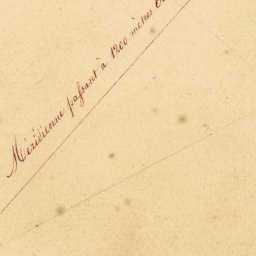 Méridienne passant à 1200 mètres